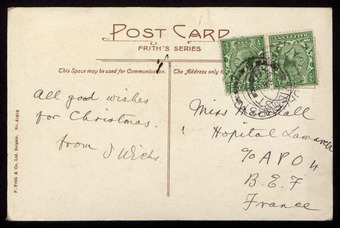 POST CARD
FRITH'S SERIES
This Space may be used for Communication.
The Address only to
All good wishes
for Christmas.
from J
Miss
Hopital
c/o A P O 4
B. E. F
France
F. Frith & Co. Ltd. Reigate. No.